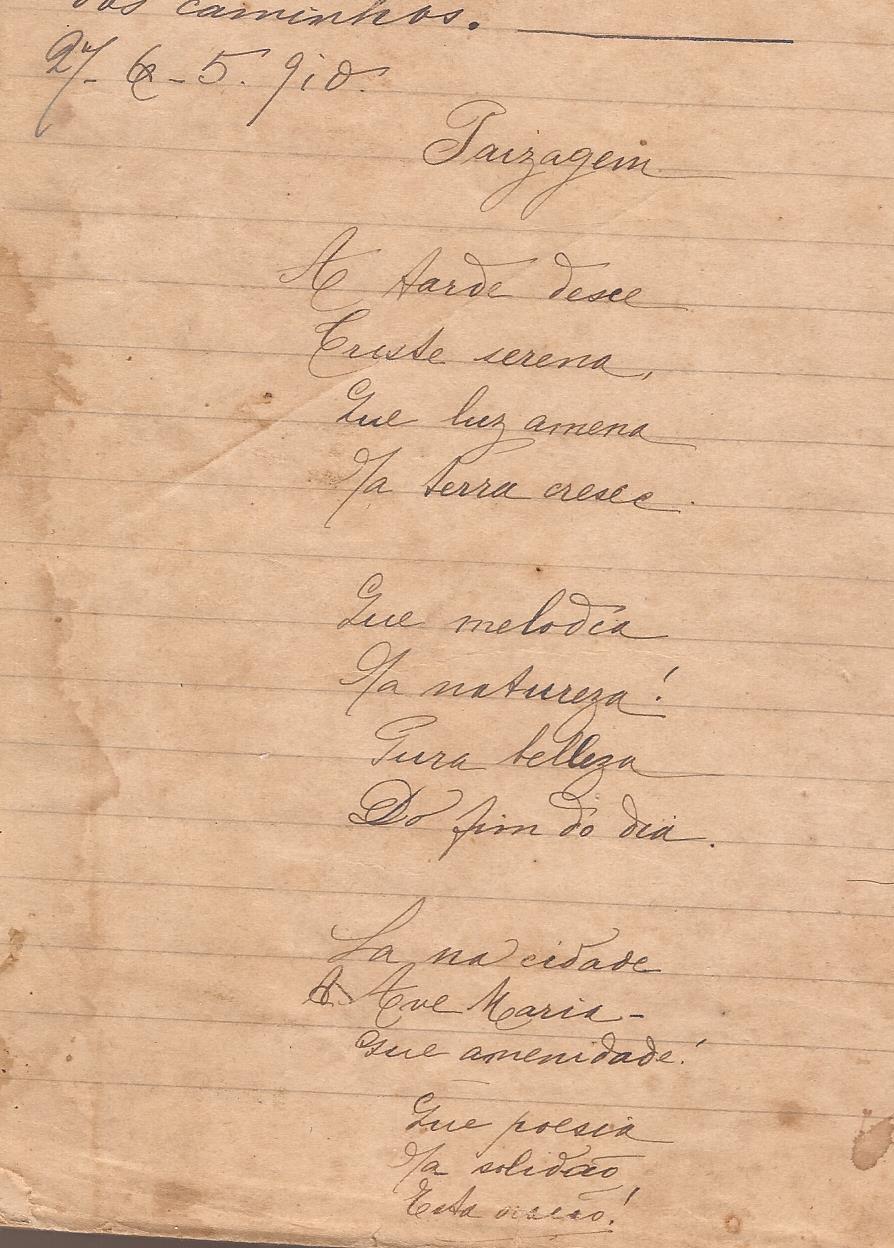 dos caminhos.
27-6-5.910.
Paizagem
A tarde desce
Triste serena,
Que luz amena
Na terra cresce.
Que melodia
Na natureza!
Pura belleza
Do fim do dia.
La na cidade
A Ave Maria-
Que amenidade!
Que poesia
Na solidão,
Esta